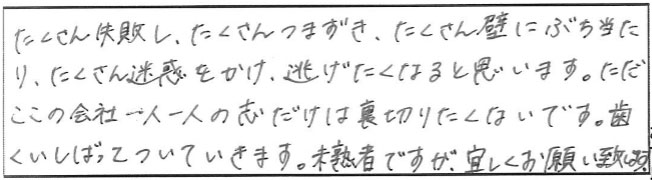 たくさん失敗し、たくさんつまずき、たくさん壁にぶち当た
り、たくさん迷惑をかけ、逃げたくなると思います。ただ
ここの会社一人一人の志だけは裏切りたくないです。歯
くいしばってついていきます。未熟者ですが、宜しくお願い致します。